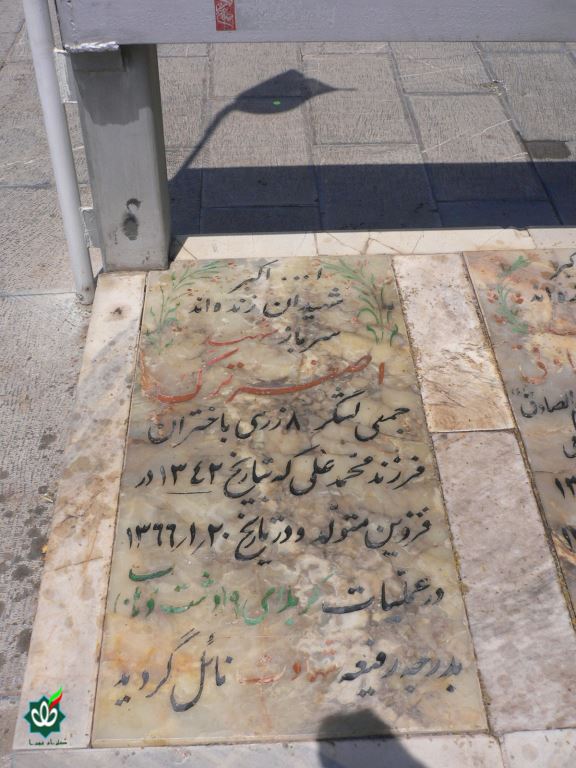 ا... اکبر
شهیدان زنده‌اند
سرباز شهید
اصغر ترک
جمعی لشگر ۸ زرهی باختران
فرزند محمدعلی که بتاریخ ۱۳۴۲ در
قزوین متولد و در تاریخ ۱۳۶۶٫۱٫۲۰
در عملیات کربلای
بدرجه رفیعه شهادت نائل گردید